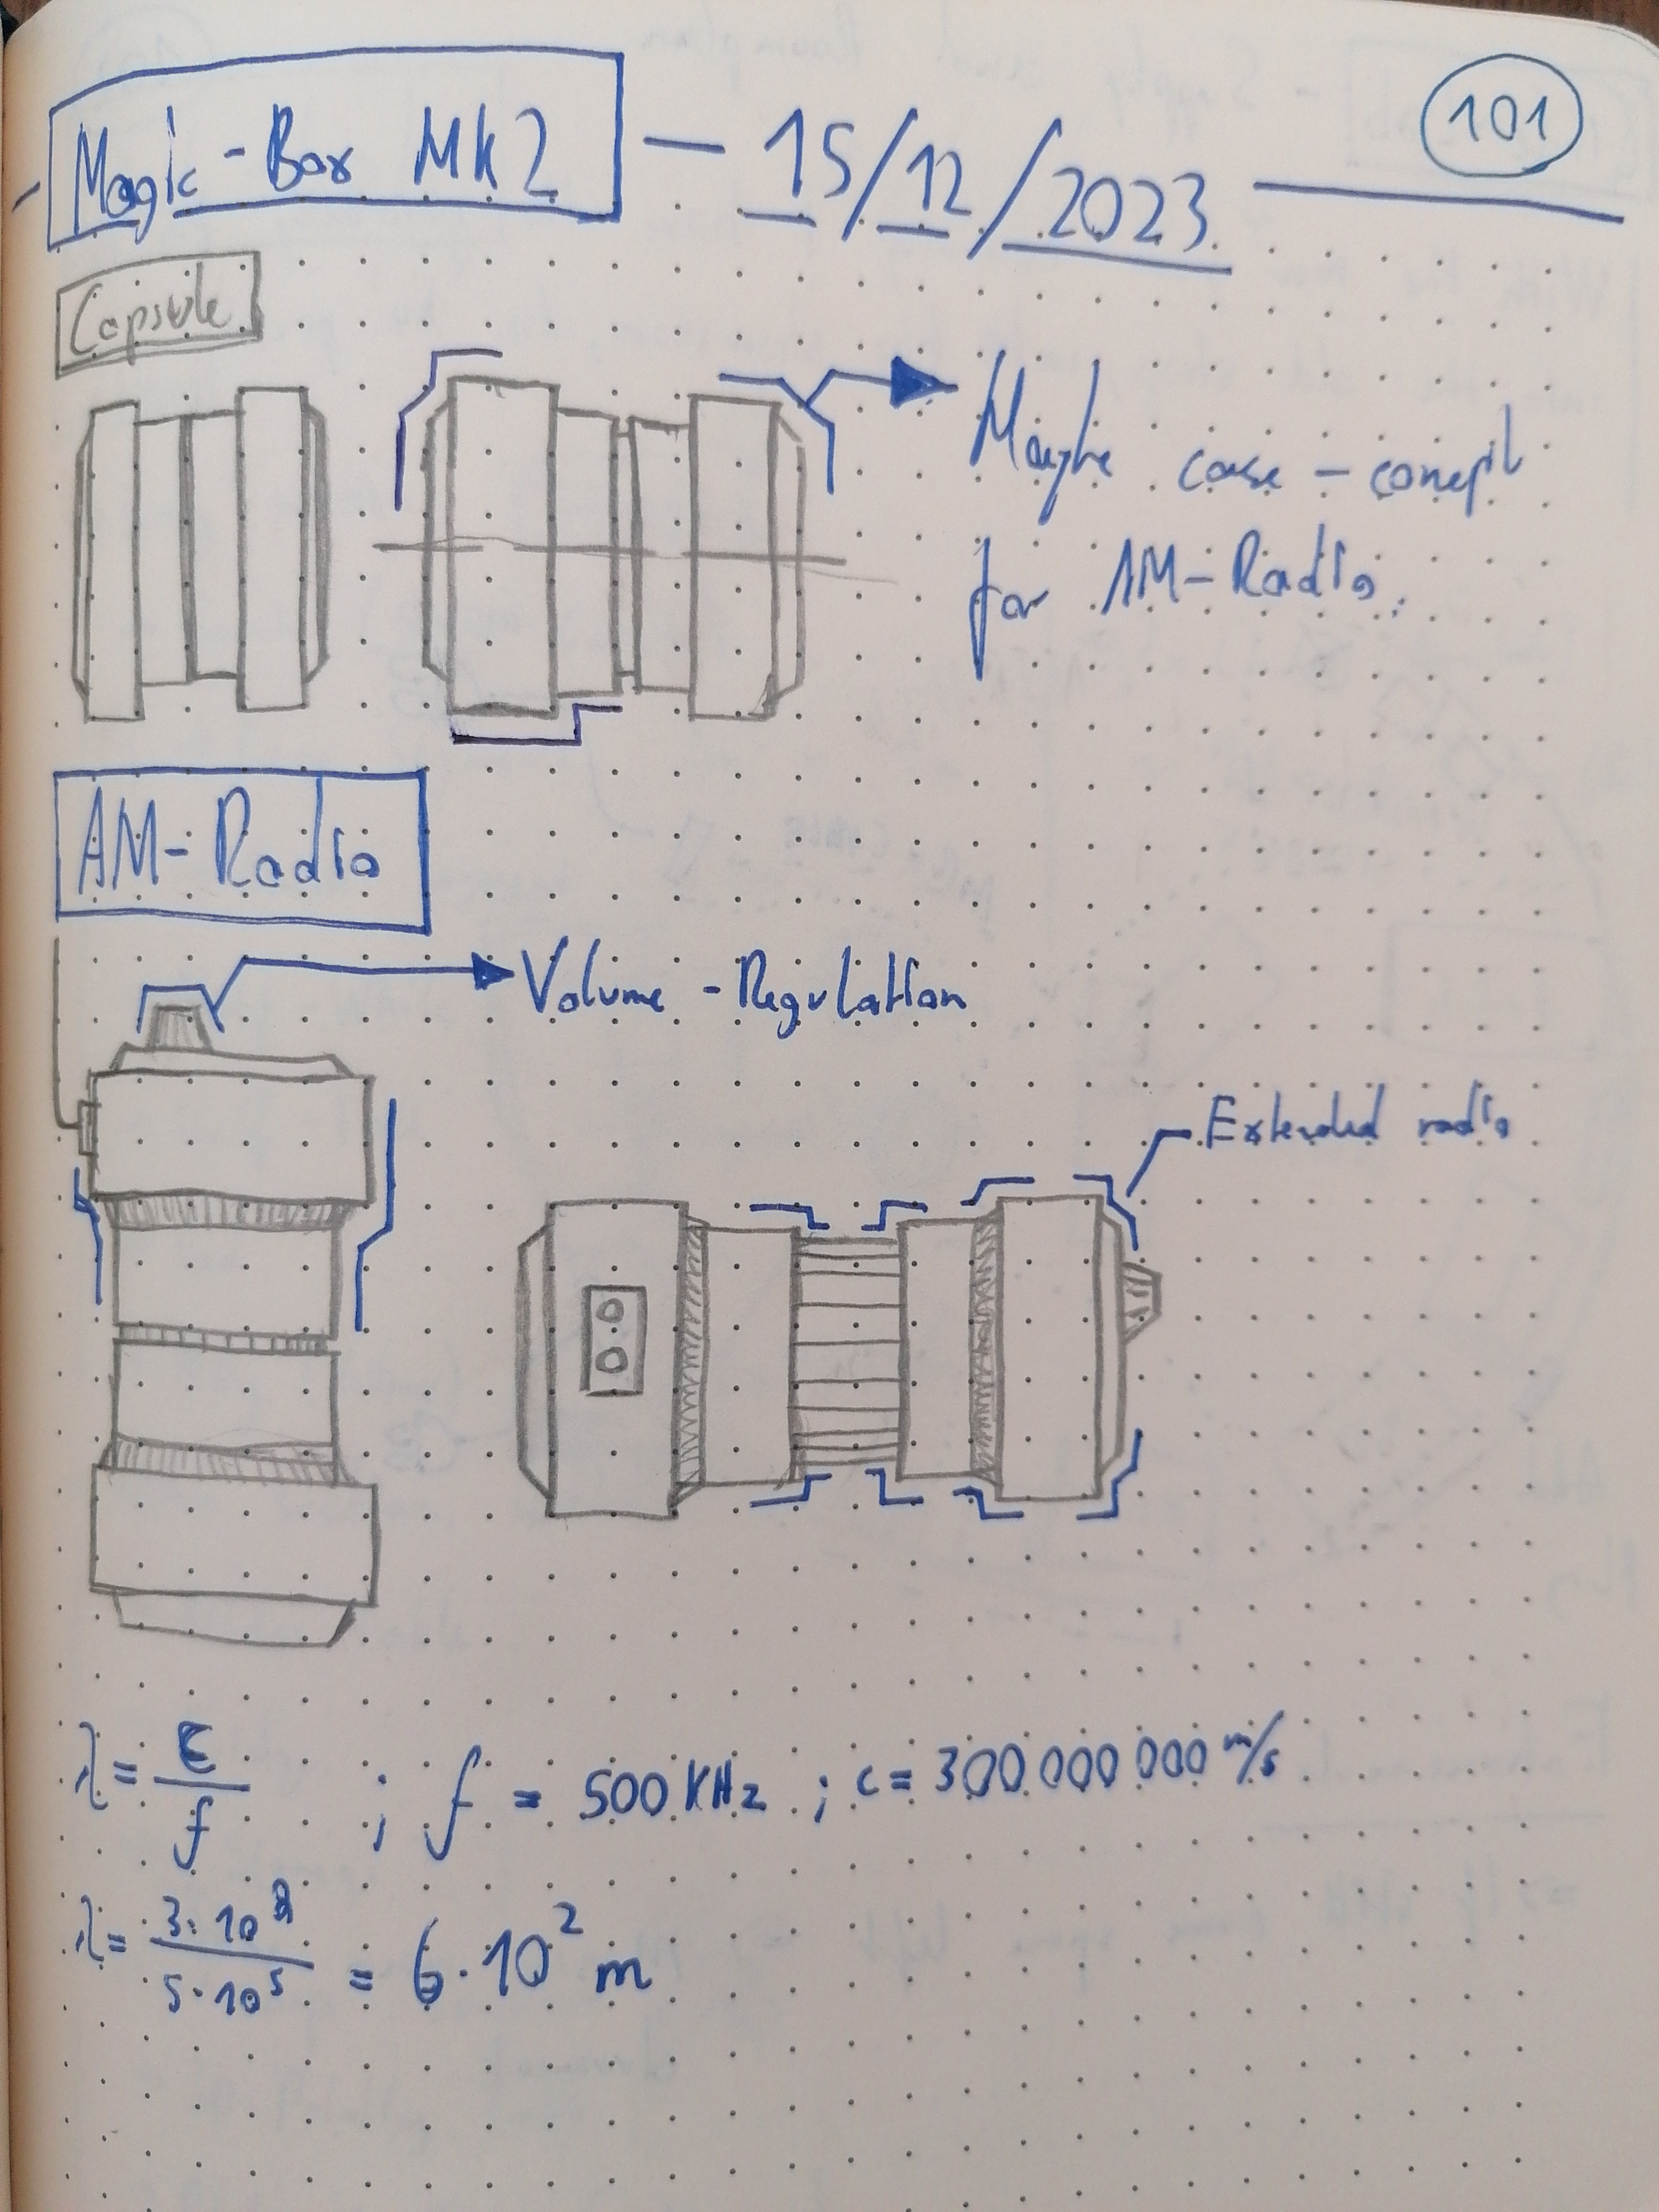 Magic-Box Mk2 — 15/12/2023
101
Capsule
Maybe case-conept
for AM-Radio.
AM-Radio
Volume-Regulation
Extended radio
λ = c/f ; f = 500 KHz ; c = 300 000 000 m/s
λ = 3·10⁸/5·10⁵ = 6·10² m